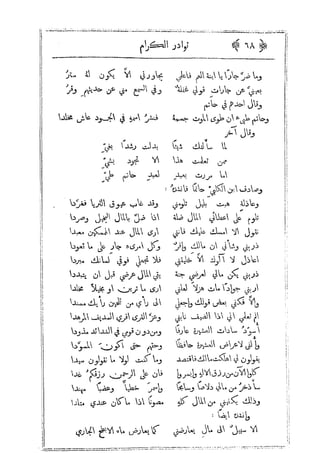 ﴿ ٦٨ ﴾ نوادر الكرام
وما ضر جارًا يا ابنة القوم فاعلي يجاورني ألا يكون له ستر
بعيني عن جارات قومي غفلة وفي السمع مني عن حديثهم وقر
وقال احدهم في حاتم
وحاتم طيء ان طوى الموت جسمه فنشر اسمه في الجود عاش مخلدا
وقال آخر
لما سألتك شيئا بدلت رشدا بغي
ممن تعلمت هذا الا تجود بشي
اما مررت بعبد لعبد حاتم طي
وصادف ابن الكلبي حاتما فانشده :
وعاذلة هبت بليل تلومني وقد غاب عيوق الثريا فغردا
تلوم على اعطائي المال ضلة اذا ضن بالمال البخيل وصردا
تقول الا امسك عليك فانني ارى المال عند الممسكين معبدا
ذريني وشأني ان مالك وافر وكل امرىء جار على ما تعودا
اعاذل لا آلوك الا خليقتي فلا تجعلي فوقي لسانك مبردا
ذريني يكن مالي لعرضي جنة يقي المال عرضي قبل ان يتبددا
اريني جوادا مات هزلا لعلني ارى ما ترين او بخيلا مخلدا
والا فكفي بعض لومك واجعلي الى رأي من تلحين رأيك مسندا
الم تعلمي اني اذا الضيف نابني وعز القرى اقري السديف المرهدا
اسود سادات العشيرة عارفا ومن دون قومي في الشدائد مذودا
وألفى لاعراض العشيرة حافظا وحقهم حتى اكون المسودا
يقولون لي اهلكت مالك فاقتصد وما كنت لولا ما تقولون سيدا
كلوا الآن من رزق الاله وايسروا فان على الرحمن رزقكم غدا
سأذخر من مالي دلاصا وسابحا واسمر خطيا وعضبا مهندا
وذلك يكفيني من المال كله مصونا اذا ما كان عندي متلدا
وانشده ايضا :
الا سبيل الى مال يعارضني كما يعارض ماء الابطح الجاري